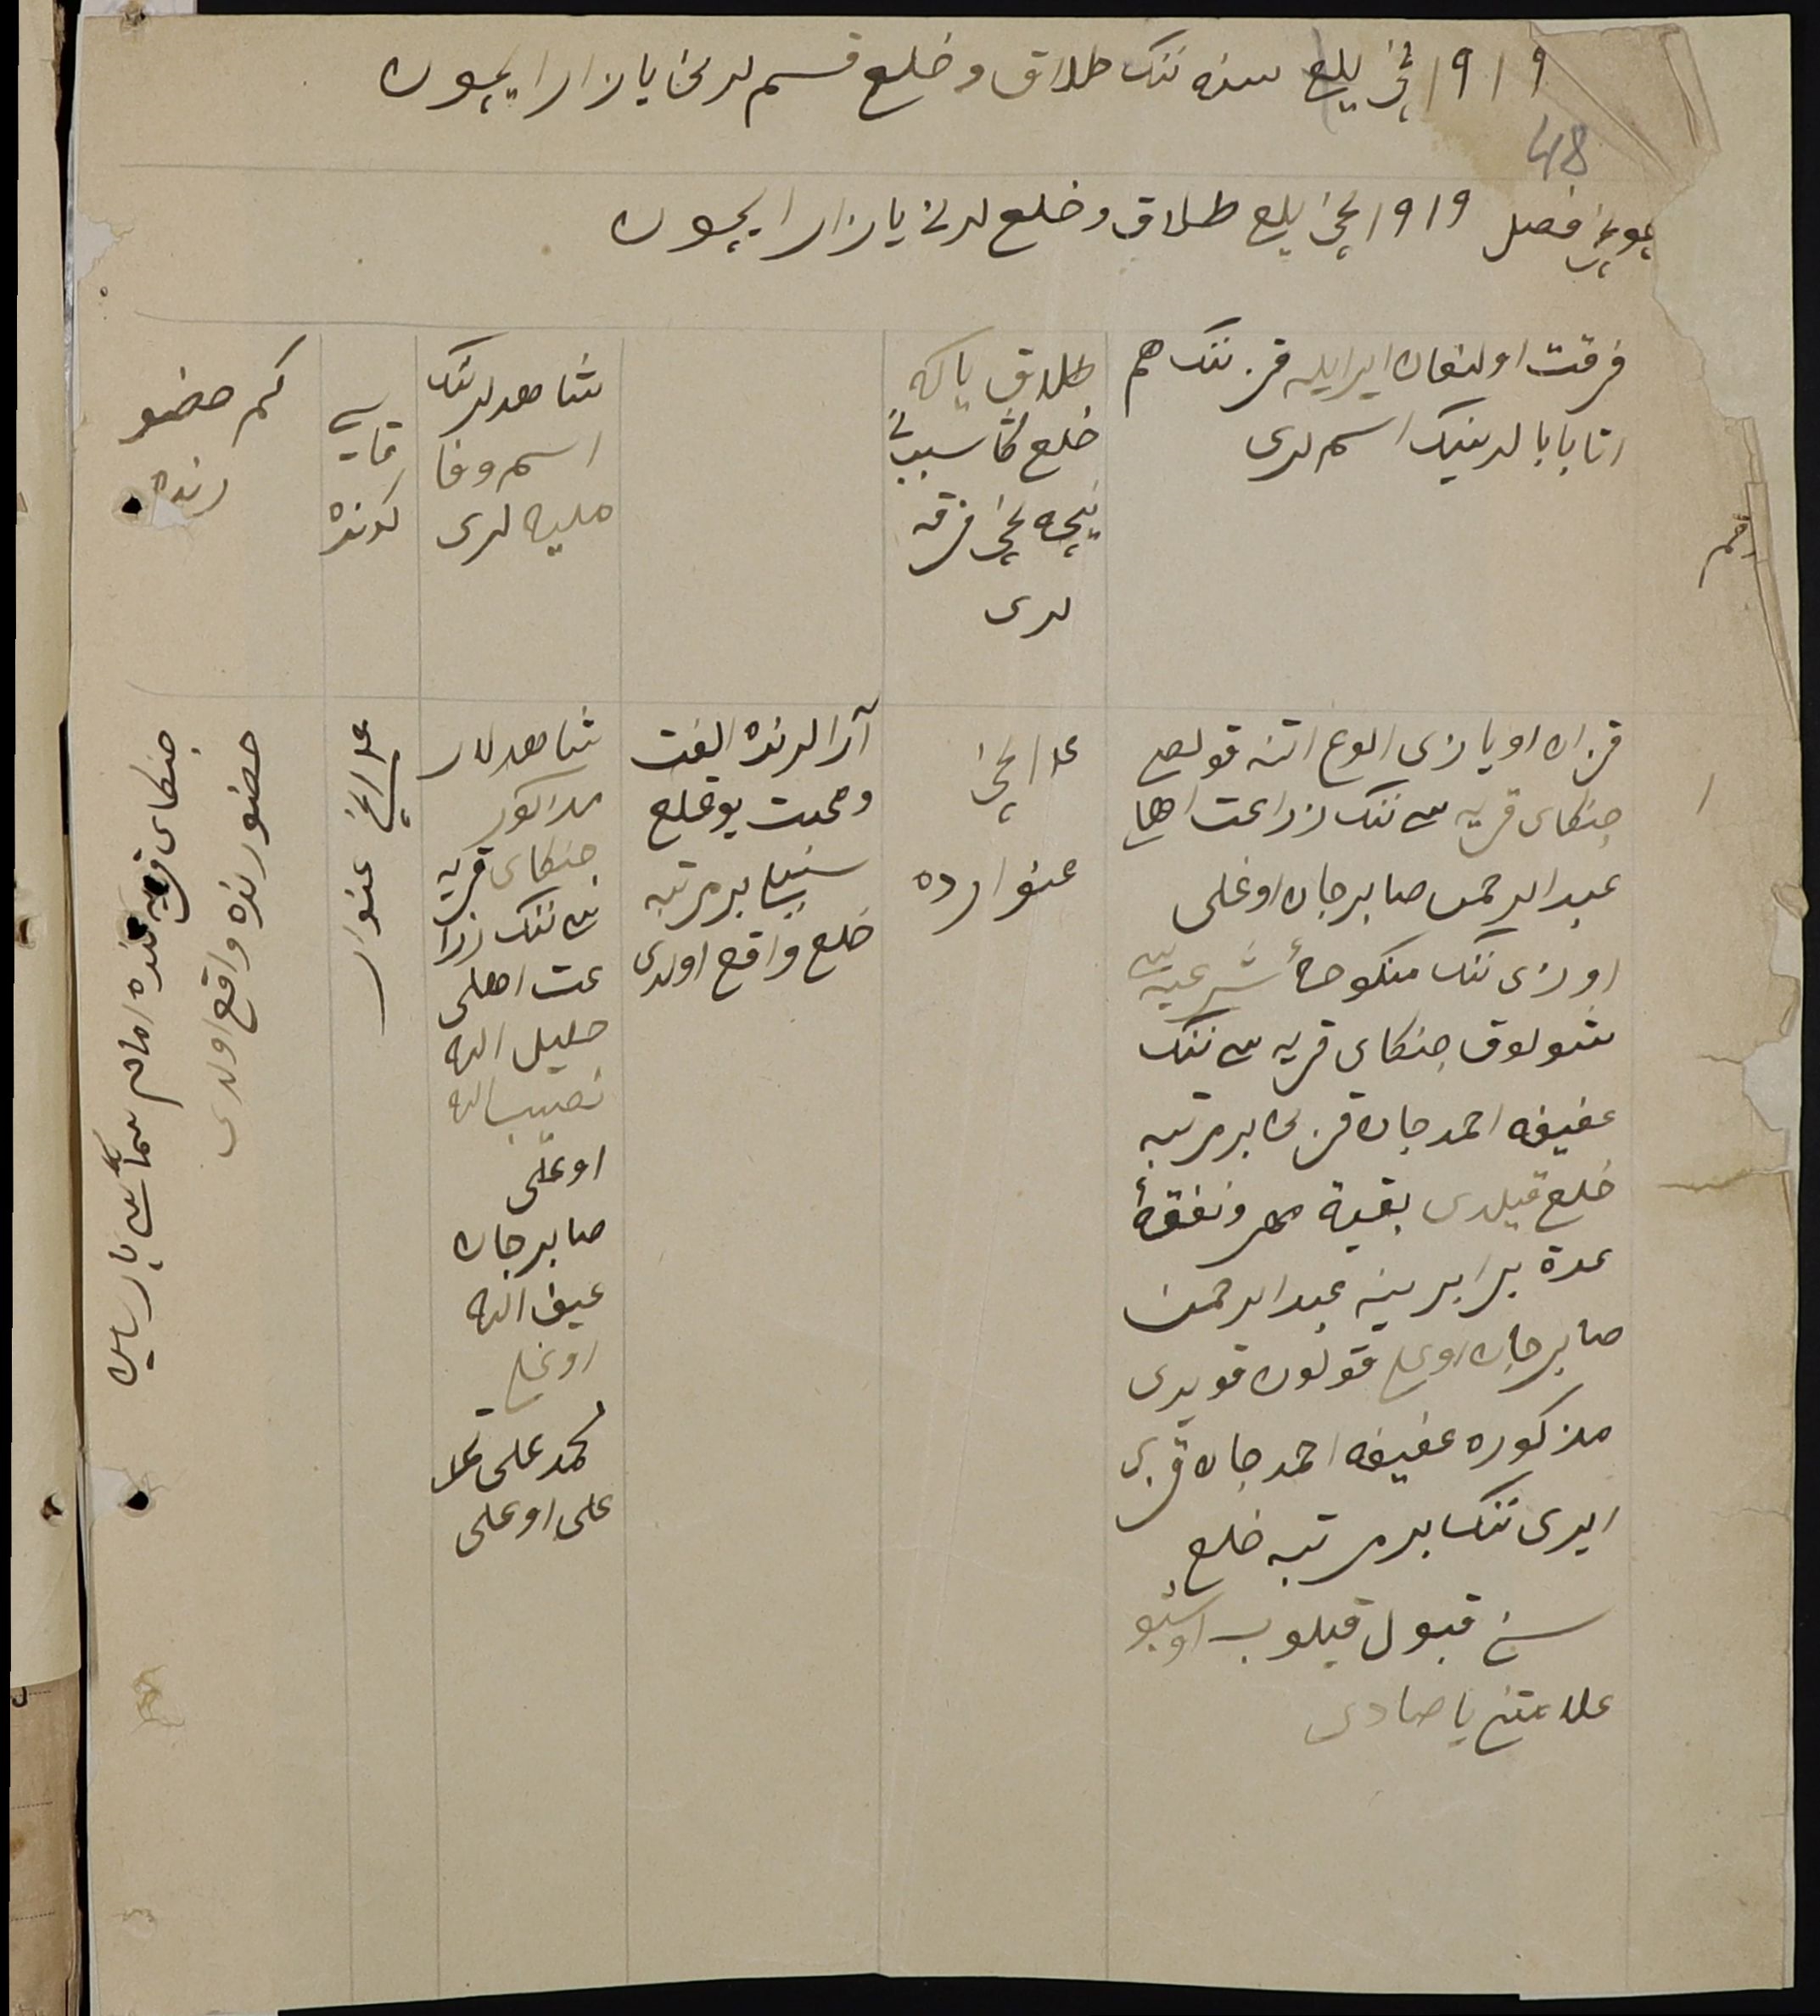 ١٩١٩ نچی یلغ سنه ننک طلاق و خلع قسم لرنی یازار ایچون
48
اوچونچی فصل ١٩١٩ نچی یلغ طلاق و خلع لرنی یازار ایچون
رقم
فرقت اولنغان ایرایله قز ننک هم
اتا بابا لرینک اسم لری
طلاق یاکه
خلع کا سبب
نیچه نچی فرقه
لری
شاهدلرننک
اسم و فا
ملیه لری
قایسی
کونده
کم حضو
رنده
١
قزان اویازی الوغ اتنه قولصی
جنکای قریه سی ننک زراعت اهلی
عبدالرحمن صابرجان اوغلی
اوزی ننک منکوحهٔ شرعیه سی
شولوق جنکای قریه سی ننک
عفیفه احمدجان قزینی بر مرتبه
خلع قیلدی بقیة مهر و نفقهٔ
عدة برابرینه عبدالرحمن
صابرجان اوغلی قولون قویدی
مذکوره عفیفه احمدجان قزی
ایری ننک بر مرتبه خلع
سنی قبول قیلوب اوشبو
علامتنی یاصادی
١٤نچی
عنواردە
آرالرنده الفت
و محبت یوقلغی
سببلی بر مرتبه
خلع واقع اولدی
شاهدلار
مذکور
جنکای قریه
سی ننک زرا
عت اهلی
خلیل الله
نصیب الله
اوغلی
صابرجان
عیف الله
اوغلی
محمدعلی
علی اوغلی
١٤نچی عنوار
جنکای قریه سنده امام
حضورنده واقع اولدی